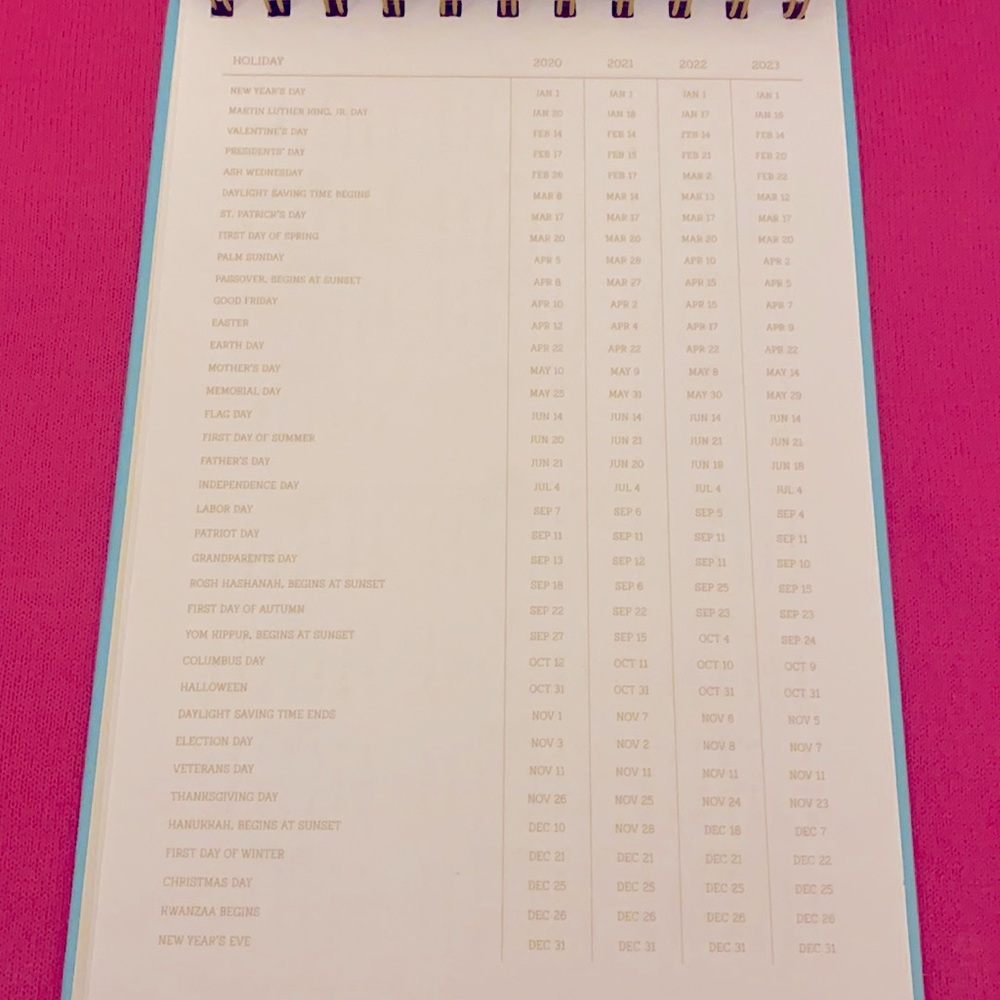 HOLIDAY 2020 2021 2022 2023
NEW YEAR'S DAY JAN 1 JAN 1 JAN 1 JAN 1
MARTIN LUTHER KING, JR. DAY JAN 20 JAN 18 JAN 17 JAN 16
VALENTINE'S DAY FEB 14 FEB 14 FEB 14 FEB 14
PRESIDENTS' DAY FEB 17 FEB 15 FEB 21 FEB 20
ASH WEDNESDAY FEB 26 FEB 17 MAR 2 FEB 22
DAYLIGHT SAVING TIME BEGINS MAR 8 MAR 14 MAR 13 MAR 12
ST. PATRICK'S DAY MAR 17 MAR 17 MAR 17 MAR 17
FIRST DAY OF SPRING MAR 20 MAR 20 MAR 20 MAR 20
PALM SUNDAY APR 5 MAR 28 APR 10 APR 2
PASSOVER, BEGINS AT SUNSET APR 8 MAR 27 APR 15 APR 5
GOOD FRIDAY APR 10 APR 2 APR 15 APR 7
EASTER APR 12 APR 4 APR 17 APR 9
EARTH DAY APR 22 APR 22 APR 22 APR 22
MOTHER'S DAY MAY 10 MAY 9 MAY 8 MAY 14
MEMORIAL DAY MAY 25 MAY 31 MAY 30 MAY 29
FLAG DAY JUN 14 JUN 14 JUN 14 JUN 14
FIRST DAY OF SUMMER JUN 20 JUN 21 JUN 21 JUN 21
FATHER'S DAY JUN 21 JUN 20 JUN 19 JUN 18
INDEPENDENCE DAY JUL 4 JUL 4 JUL 4 JUL 4
LABOR DAY SEP 7 SEP 6 SEP 5 SEP 4
PATRIOT DAY SEP 11 SEP 11 SEP 11 SEP 11
GRANDPARENTS DAY SEP 13 SEP 12 SEP 11 SEP 10
ROSH HASHANAH, BEGINS AT SUNSET SEP 18 SEP 6 SEP 25 SEP 15
FIRST DAY OF AUTUMN SEP 22 SEP 22 SEP 23 SEP 23
YOM KIPPUR, BEGINS AT SUNSET SEP 27 SEP 15 OCT 4 SEP 24
COLUMBUS DAY OCT 12 OCT 11 OCT 10 OCT 9
HALLOWEEN OCT 31 OCT 31 OCT 31 OCT 31
DAYLIGHT SAVING TIME ENDS NOV 1 NOV 7 NOV 6 NOV 5
ELECTION DAY NOV 3 NOV 2 NOV 8 NOV 7
VETERANS DAY NOV 11 NOV 11 NOV 11 NOV 11
THANKSGIVING DAY NOV 26 NOV 25 NOV 24 NOV 23
HANUKKAH, BEGINS AT SUNSET DEC 10 NOV 28 DEC 18 DEC 7
FIRST DAY OF WINTER DEC 21 DEC 21 DEC 21 DEC 22
CHRISTMAS DAY DEC 25 DEC 25 DEC 25 DEC 25
KWANZAA BEGINS DEC 26 DEC 26 DEC 26 DEC 26
NEW YEAR'S EVE DEC 31 DEC 31 DEC 31 DEC 31